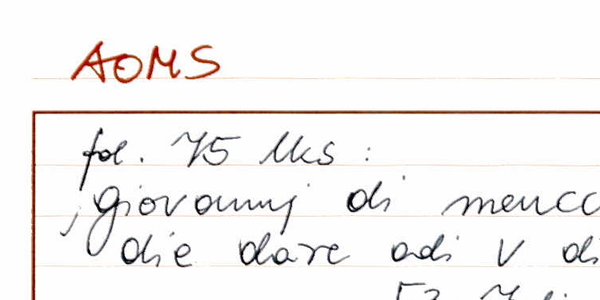 AOMS
fol. 75 lks :
giovannj di mencc
die dare adi V di
53